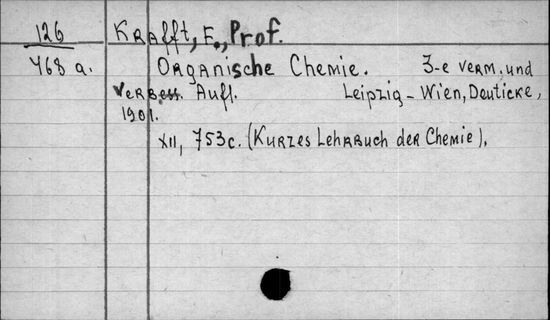 126 Krafft, F., Prof.
468 a. Organische Chemie. 3-e verm. und
verbess. Aufl. Leipzig - Wien, Deuticke,
1901.
XII, 753c. (Kurzes Lehrbuch der Chemie).